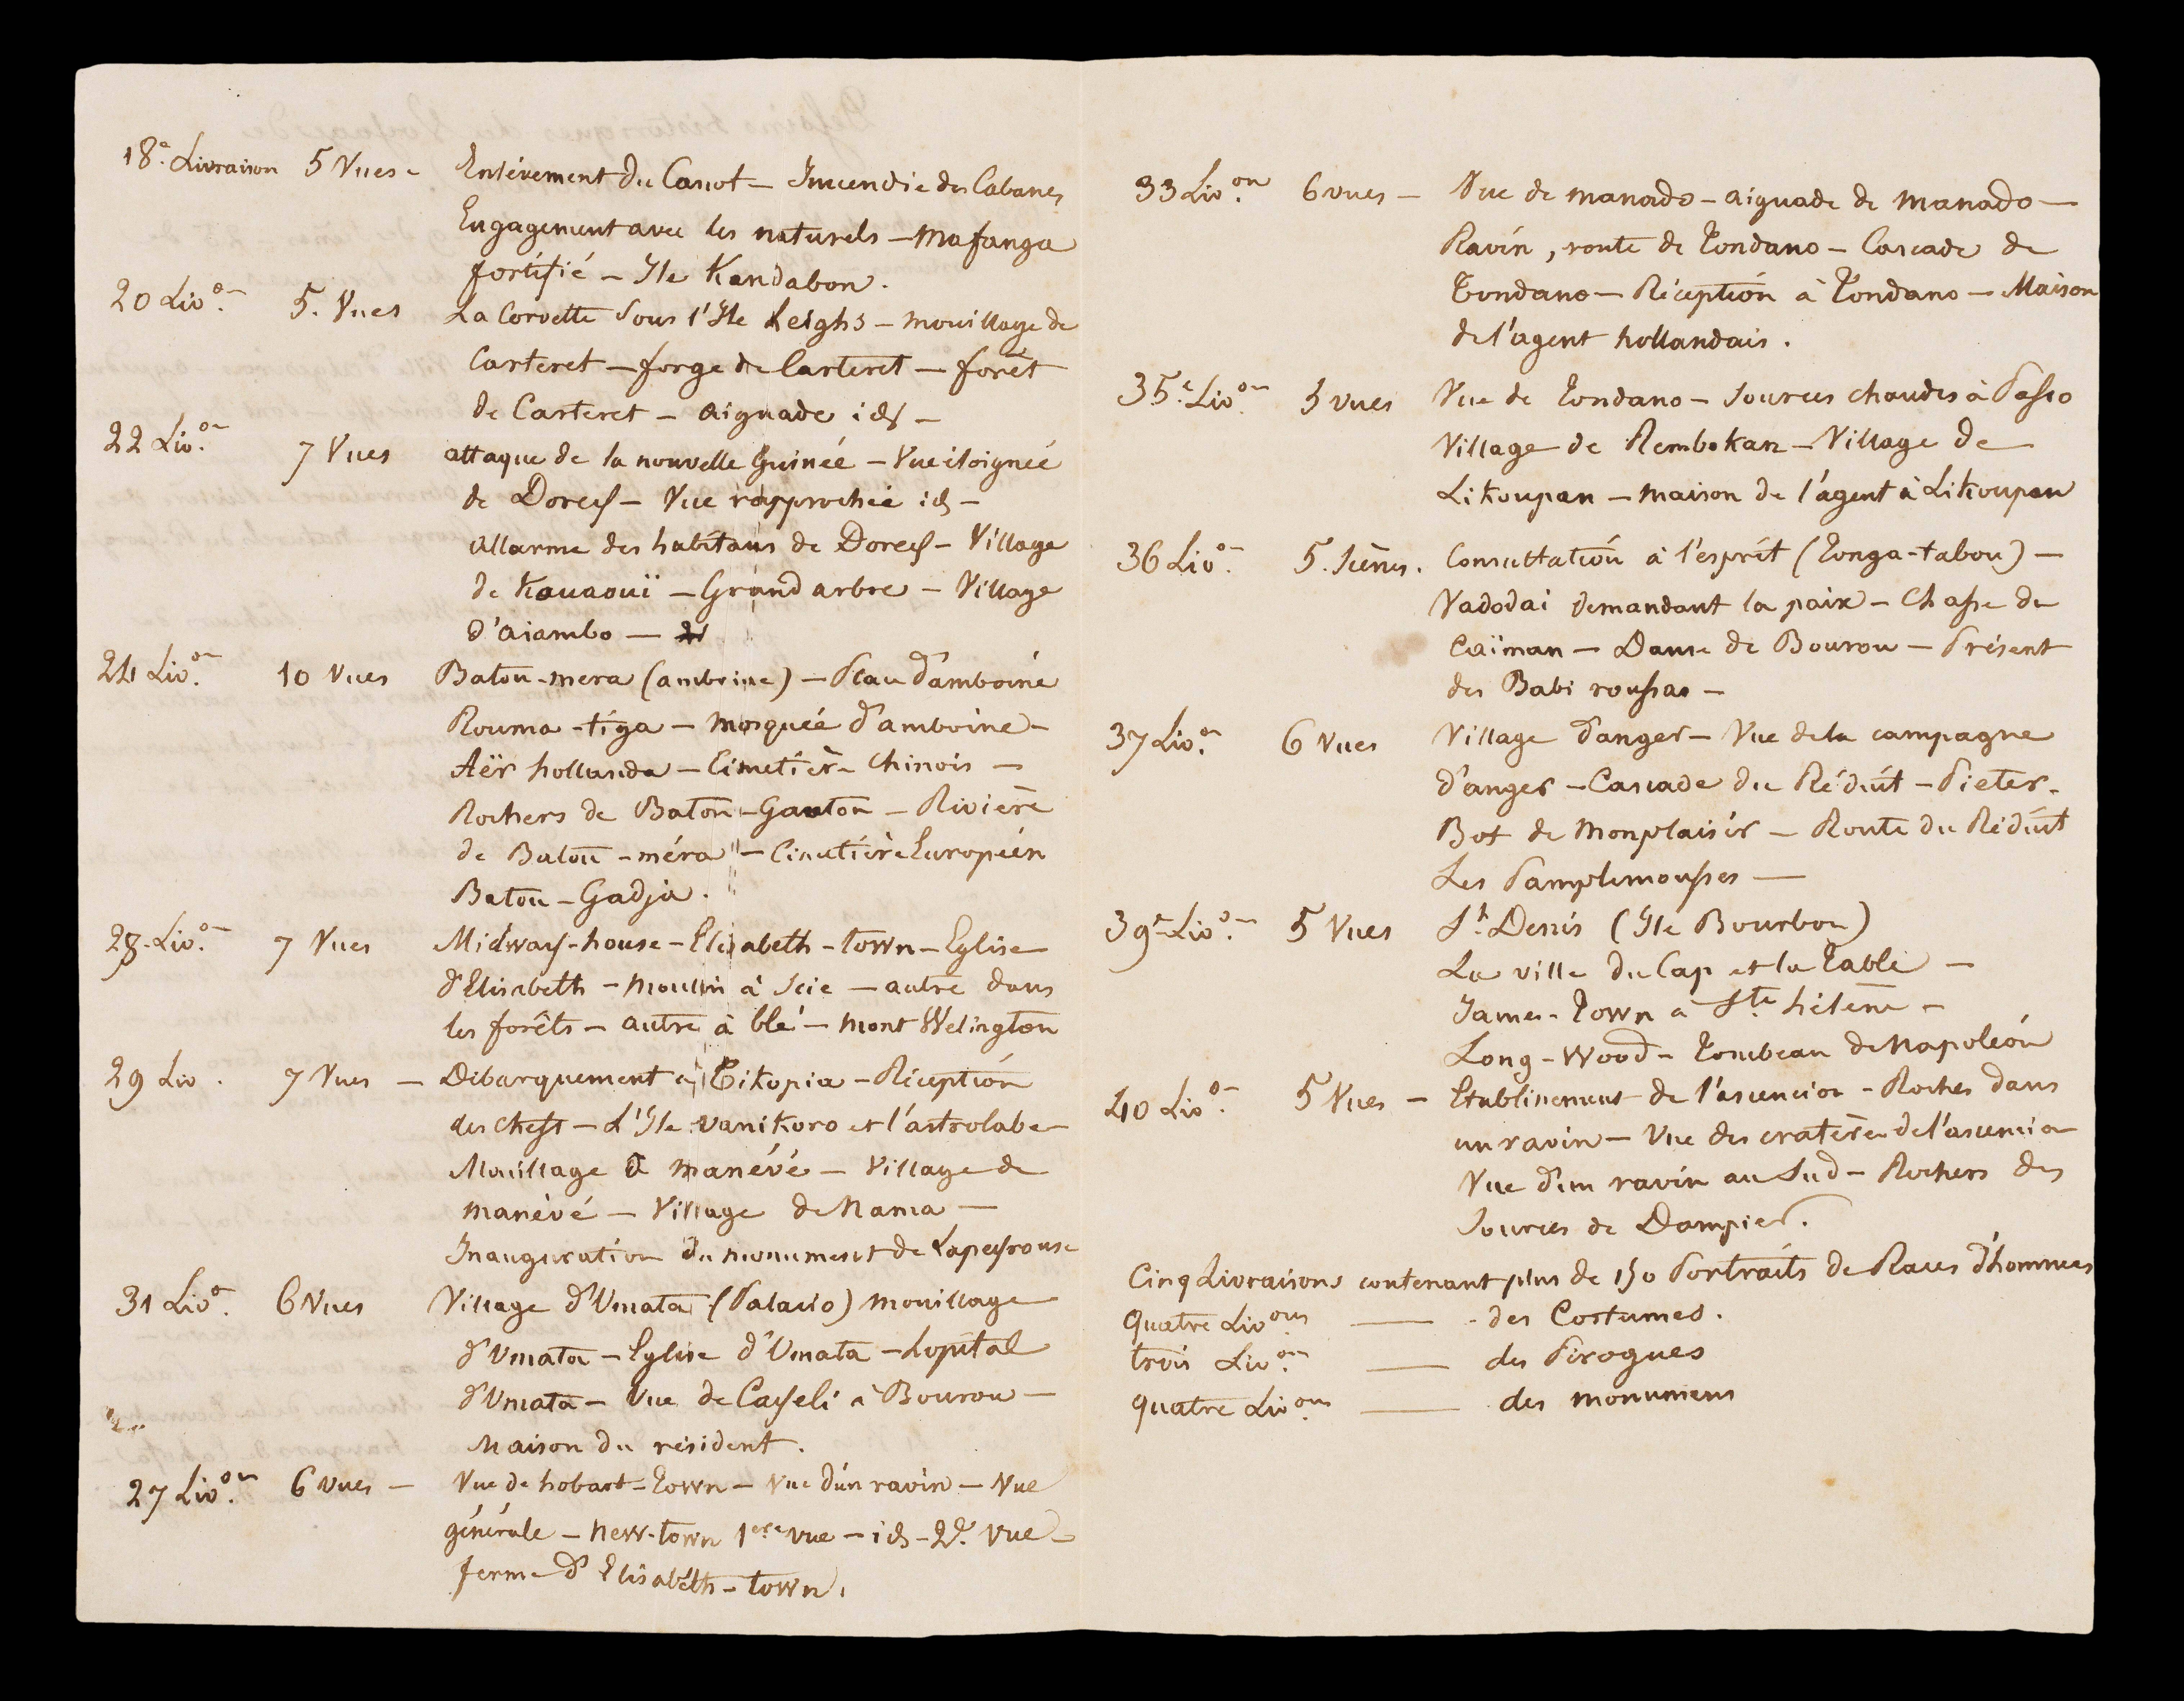 18e. Livraison 5 Vues - Enlévement du Canot - Incendie des Cabanes
Engagement avec les naturels - Mafanga
fortifié - Ile Kandabon.
20 Livon. 5. Vues La Corvette sous l'Ile Leighs - Mouillage de
Carteret - forge de Carteret - forêt
de Carteret - aiguade id -
22 Livon. 7 Vues attaque de la nouvelle Guinéé - Vue éloignéé
de Dorey - Vue rapprochéé id -
Allarme des habitans de Dorey - Village
de Kouaouï - Grand arbre - Village
d'aiambo -
24 Livon. 10 Vues Batou-mera (amboine) - Peau d'amboine
Rouma-tiga - Mosquéé d'amboine -
Aër hollanda - Cimetière Chinois -
Rochers de Batou-Ganton - Rivière
de Batou-méra - Cimetière Européen
Batou-Gadja.
28. Livon. 7 Vues Midway-house - Elisabeth-town - Eglise
d'Elisabeth - moulin à scie - autre dans
les forêts - autre à blé - mont Welington
29 Liv. 7 Vues - Débarquement à Tikopia - Réception
des chefs - L'Ile vanikoro et l'astrolabe -
Mouillage à manévé - Village de
manévé - Village de Nama -
Inauguration du monument de Lapeyrouse
31 Livo. 6 Vues Village d'Umata (Palacio) mouillage
d'Umata - Eglise d'Umata - Lopital
d'Umata - Vue de Cayeli à Bourou -
Maison du résident.
27 Livon. 6 vues - Vue de hobart-Town - Vue d'un ravin - Vue
générale - New-town 1ere vue - id - 2e. vue -
ferme d'Elisabeth-town.
33 Livon. 6 vues - Vue de manado - aiguade de manado -
Ravin, route de Tondano - Cascade de
Tondano - Réception à Tondano - Maison
de l'agent hollandais.
35e. Livon. 5 vues Vue de Tondano - sources chaudes à Passo
Village de Rembokan - Village de
Likoupan - maison de l'agent à Likoupan
36 Livon. 5. scènes. Consultation à l'esprit (Tonga-tabou) -
Vadodai demandant la paix - Chasse du
Caïman - Danse de Bourou - Présent
des Babi roussas -
37 Livon. 6 Vues Village d'anger - Vue de la campagne
d'anger - Cascade du Réduit - Pieter-
Bot de Monplaisir - Route du Réduit
Les Pamplemousses -
39e Livon. 5 Vues St. Denis (Ile Bourbon)
La ville du Cap et la Table -
James-Town à Ste hélène -
Long-Wood - Tombeau de Napoléon
40 Livon. 5 Vues - Etablissement de l'ascencion - Roches dans
un ravin - Vue des cratères de l'ascencion
Vue d'un ravin au Sud - Rochers des
sources de Dampier.
Cinq Livraisons contenant plus de 150 Portraits de Races d'hommes
Quatre Livons - des Costumes.
trois Livon. - des Pirogues
quatre Livons - des monumens